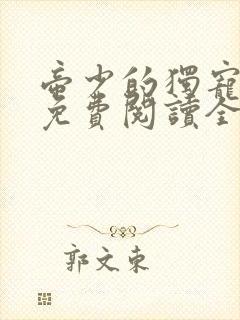 帝少的獨寵
免費閱讀全
郭文東